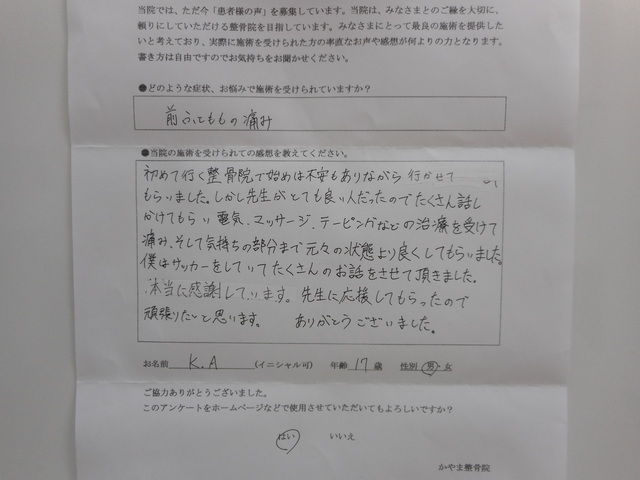 当院では、ただ今「患者様の声」を募集しています。当院は、みなさまとのご縁を大切に、
頼りにしていただける整骨院を目指しています。みなさまにとって最良の施術を提供した
いと考えており、実際に施術を受けられた方の率直なお声や感想が何よりの力となります。
書き方は自由ですのでお気持ちをお聞かせください。
●どのような症状、お悩みで施術を受けられていますか？
前ふとももの痛み
●当院の施術を受けられての感想を教えてください。
初めて行く整骨院で始めは不安もありながら行かせて
もらいました。しかし先生がとても良い人だったのでたくさん話し
かけてもらい電気、マッサージ、テーピングなどの治療を受けて
痛み、そして気持ちの部分まで元々の状態より良くしてもらいました。
僕はサッカーをしていてたくさんのお話をさせて頂きました。
本当に感謝しています。先生に応援してもらったので
頑張りたいと思います。 ありがとうございました。
お名前 K.A (イニシャル可) 年齢 17 歳 性別 男・女
ご協力ありがとうございました。
このアンケートをホームページなどで使用させていただいてもよろしいですか？
はい いいえ
かやま整骨院